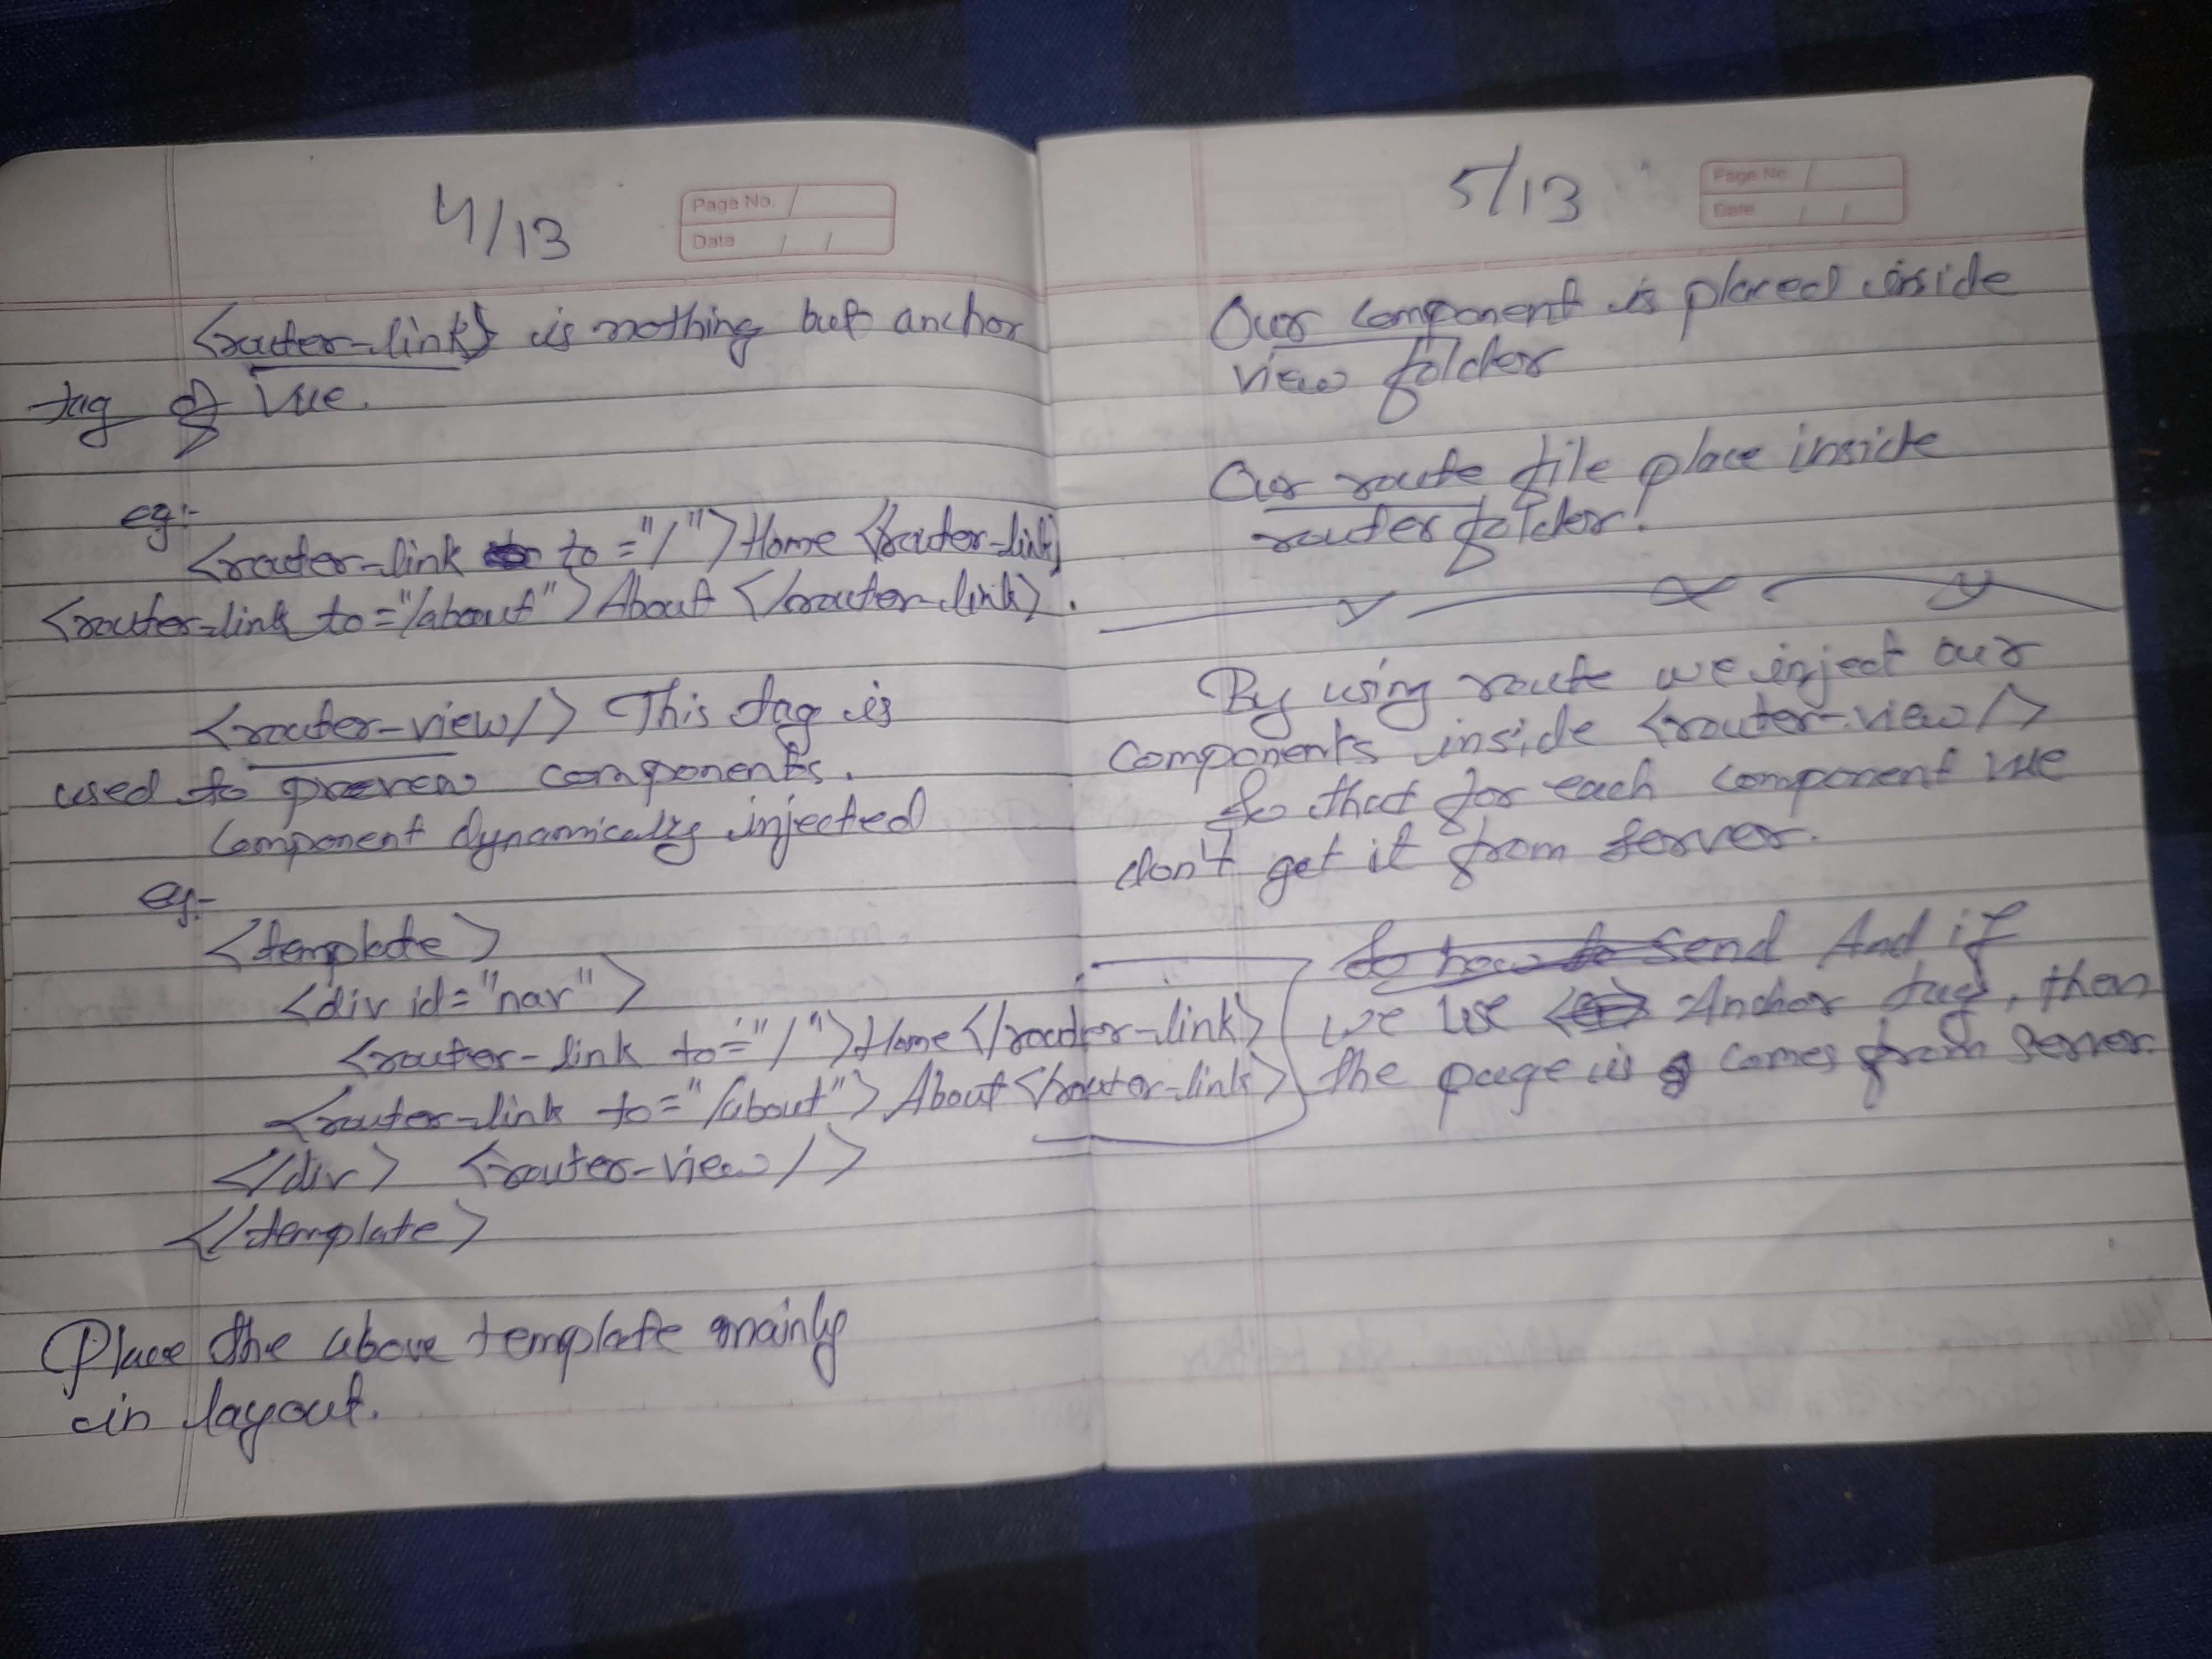 4/13
Page No. /
Date / /
<router-link> is nothing but anchor
tag of Vue.
eg:-
<router-link to="/">Home</router-link>
<router-link to="/about">About</router-link>.
<router-view/> This tag is
used to components.
Component dynamically injected
eg:-
<template>
<div id="nav">
<router-link to="/">Home</router-link>
<router-link to="/about">About</router-link>
</div> <router-view/>
</template>
Place the above template mainly
in layout.
5/13
Page No. /
Date / /
Our component is placed inside
view folder
Our route file place inside
router folder!
By using route we inject our
components inside <router-view/>
So that for each component vue
don't get it from server.
So how to send And if
we use Anchor tag, then
the page is comes from server.